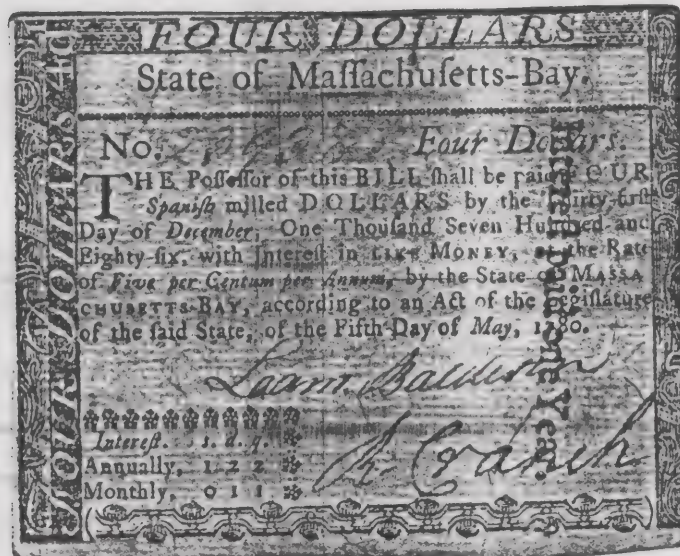 FOUR DOLLARS
State of Maſſachuſetts-Bay.
No. Four Dollars.
THE Poſſeſſor of this BILL ſhall be paid FOUR
Spaniſh milled DOLLARS by the Thirty-firſt
Day of December, One Thouſand Seven Hundred and
Eighty-ſix, with Intereſt in LIKE MONEY, at the Rate
of Five per Centum per Annum, by the State of MASSA
CHUSETTS-BAY, according to an Act of the Legiſlature
of the ſaid State, of the Fifth Day of May, 1780.
Loam. Baldwin
R. Cranch
Intereſt. s. d. q.
Annually, 1 2 2
Monthly, 0 1 1
FOUR DOLLARS
Intereſt paid one Year.